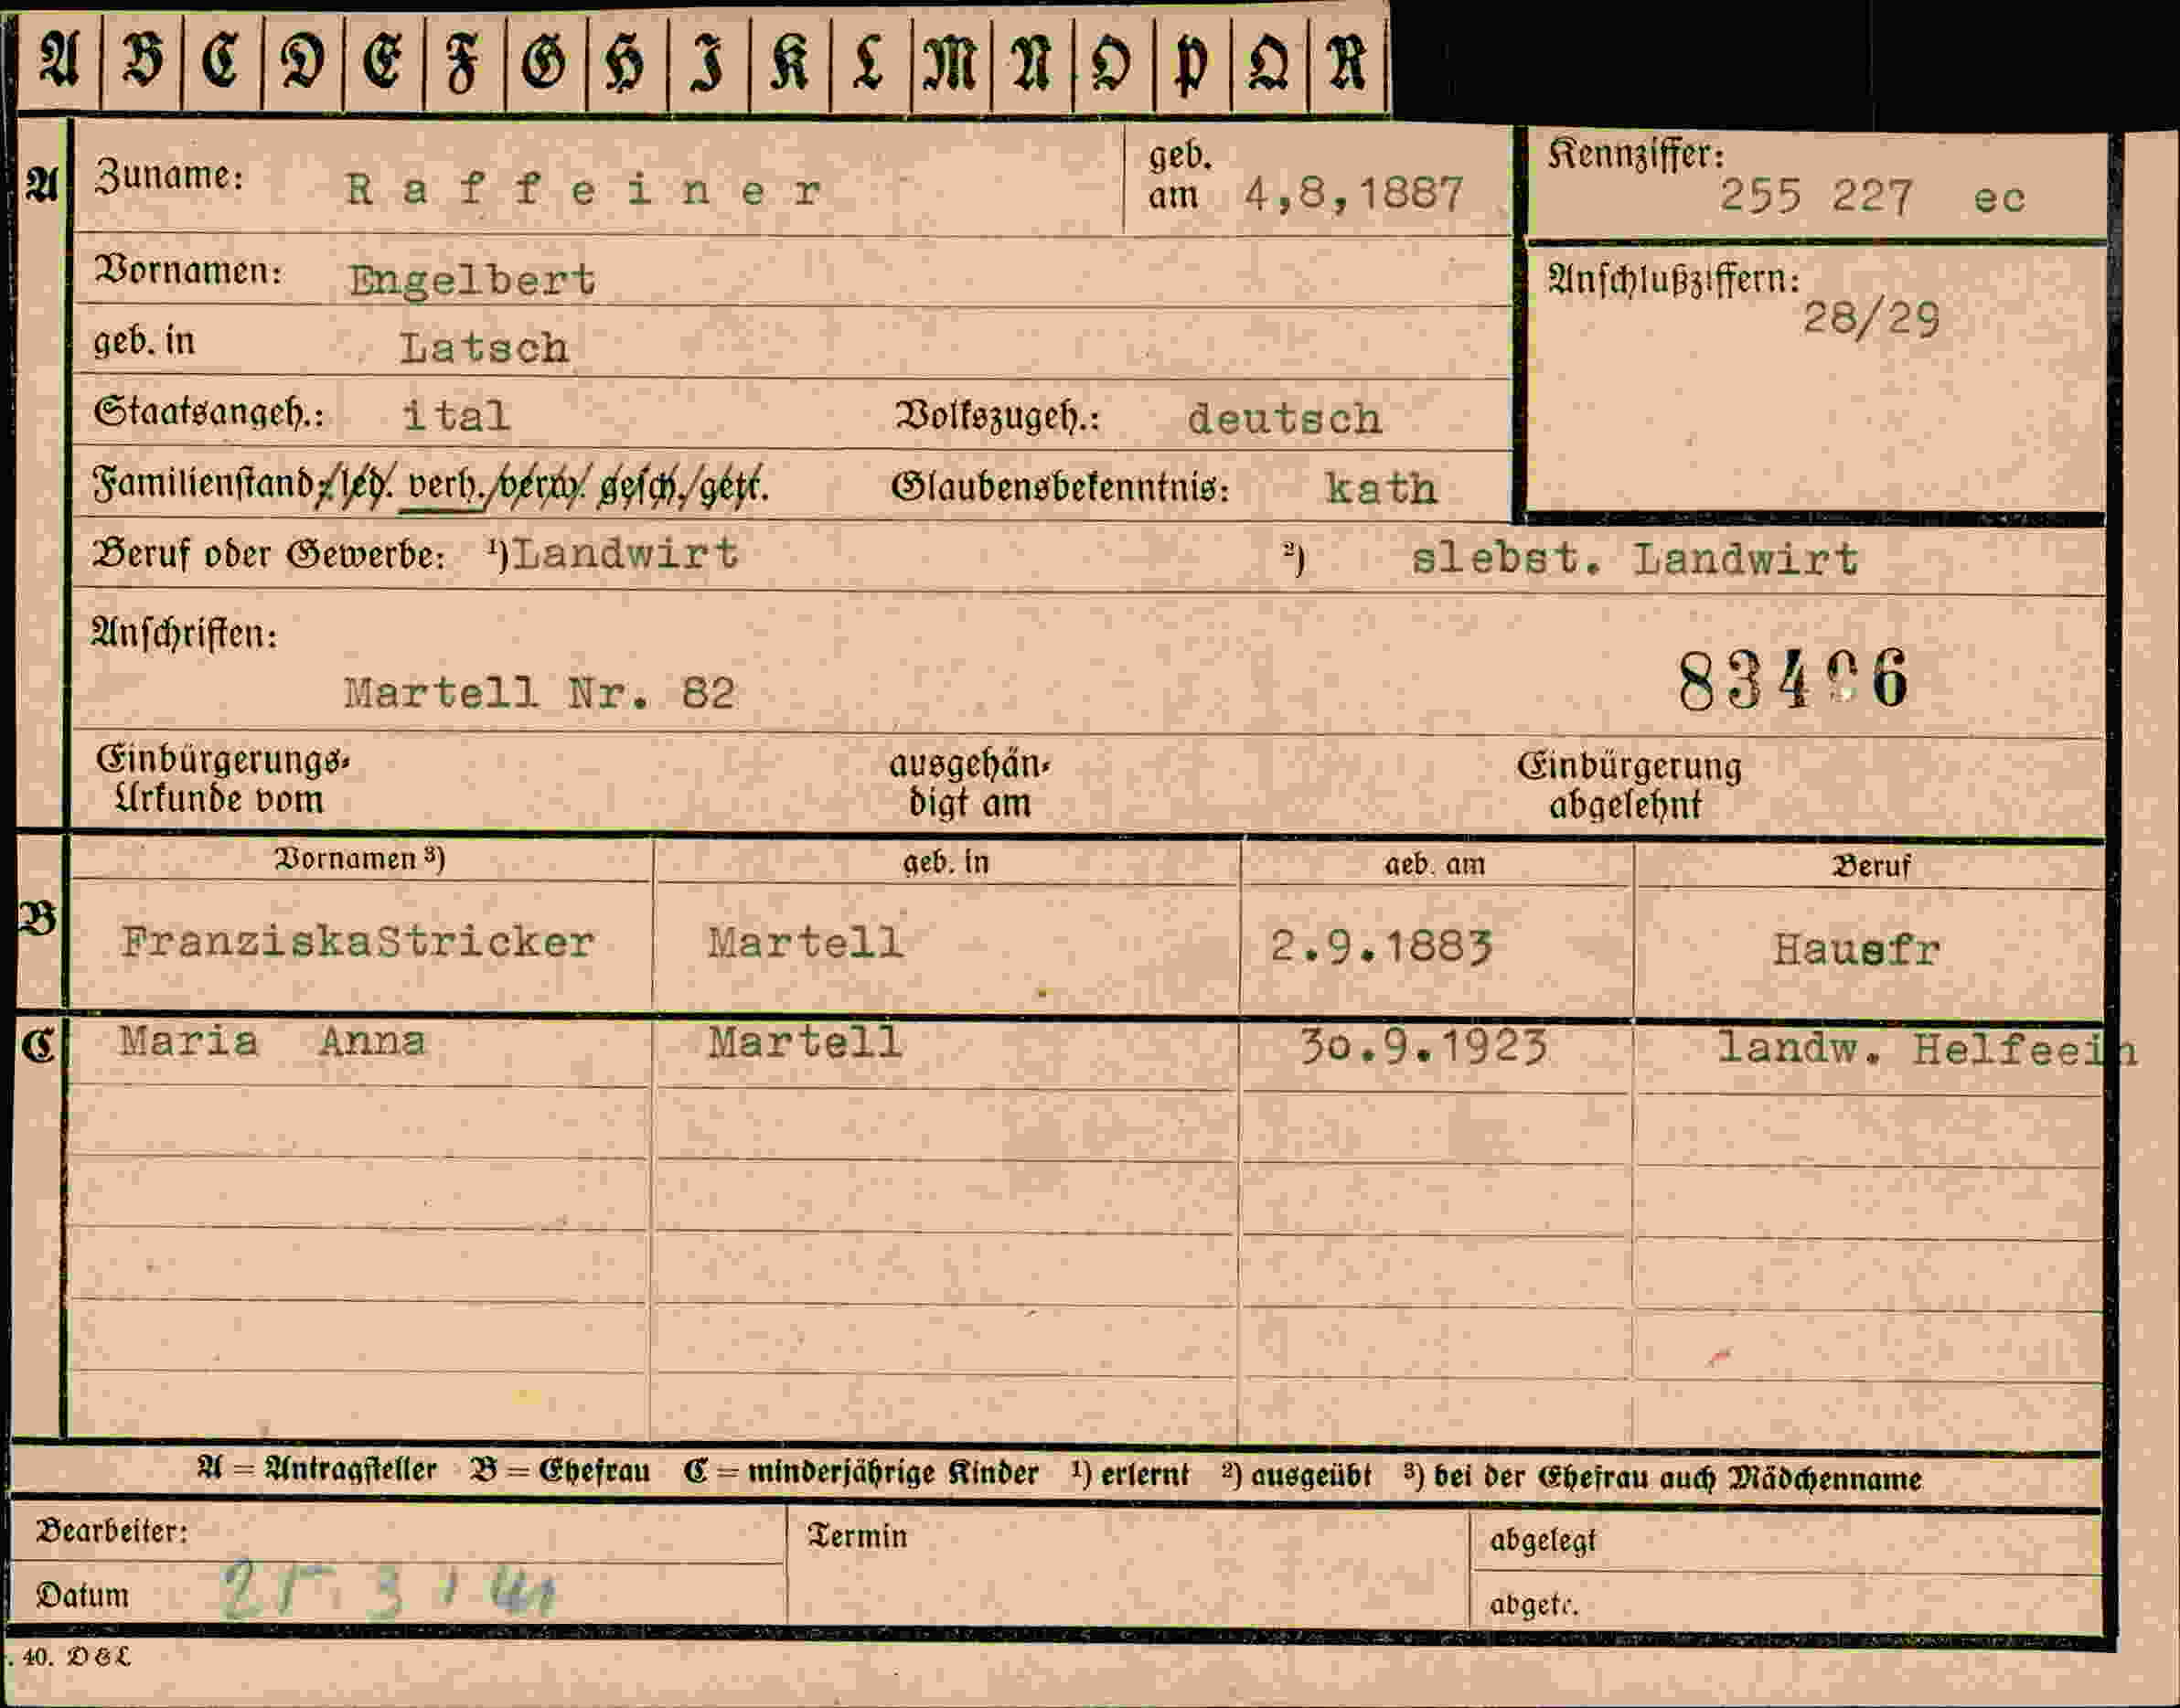 A B C D E F G H I K L M N O P Q R
A Zuname: Raffeiner geb. am 4,8,1887 Kennziffer: 255 227 ec
Vornamen: Engelbert Anschlußziffern: 28/29
geb. in Latsch
Staatsangeh.: ital Volkszugeh.: deutsch
Familienstand: led. verh. verw. gesch. getr. Glaubensbekenntnis: kath
Beruf oder Gewerbe: ¹) Landwirt ²) slebst. Landwirt
Anschriften:
Martell Nr. 82
Einbürgerungs-Urkunde vom ausgehändigt am Einbürgerung abgelehnt
Vornamen ³) geb. in geb. am Beruf
B FranziskaStricker Martell 2.9.1883 Hausfr
C Maria Anna Martell 30.9.1923 landw. Helfeein
A = Antragsteller B = Ehefrau C = minderjährige Kinder ¹) erlernt ²) ausgeübt ³) bei der Ehefrau auch Mädchenname
Bearbeiter: Termin abgelegt
Datum 25.3.41 abgetr.
. 40. D&L